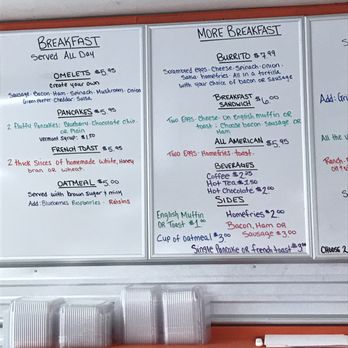 BREAKFAST
Served All Day
OMELETS $5.95
create your own
Sausage · Bacon · Ham · Spinach · Mushroom · Onion
Green Pepper · Cheddar · Salsa
PANCAKES $5.95
2 Fluffy Pancakes · Blueberry · Chocolate Chip
or Plain
Vermont Syrup · $1.50
FRENCH TOAST $5.95
2 thick slices of homemade white, Honey
bran or wheat.
OATMEAL $5.00
Served with brown sugar & milk
Add: Blueberries Raspberries · Raisins
MORE BREAKFAST
BURRITO $7.99
Scrambled eggs · Cheese · Spinach · Onion ·
Salsa · homefries All in a tortilla
with your choice of bacon or sausage
BREAKFAST
SANDWICH $6.00
Two Eggs · Cheese · On English muffin or
toast · Choose bacon sausage or
Ham
ALL AMERICAN $5.95
Two Eggs · Homefries · toast
BEVERAGES
Coffee $2.25
Hot Tea $1.50
Hot Chocolate $2.00
SIDES
English Muffin
or Toast $1.00
Homefries $2.00
Bacon, Ham or
Sausage $3.00
Cup of oatmeal $3.00
Single Pancake or french toast $3.00
Add:
All the
Ranch
or
CHOOSE 2